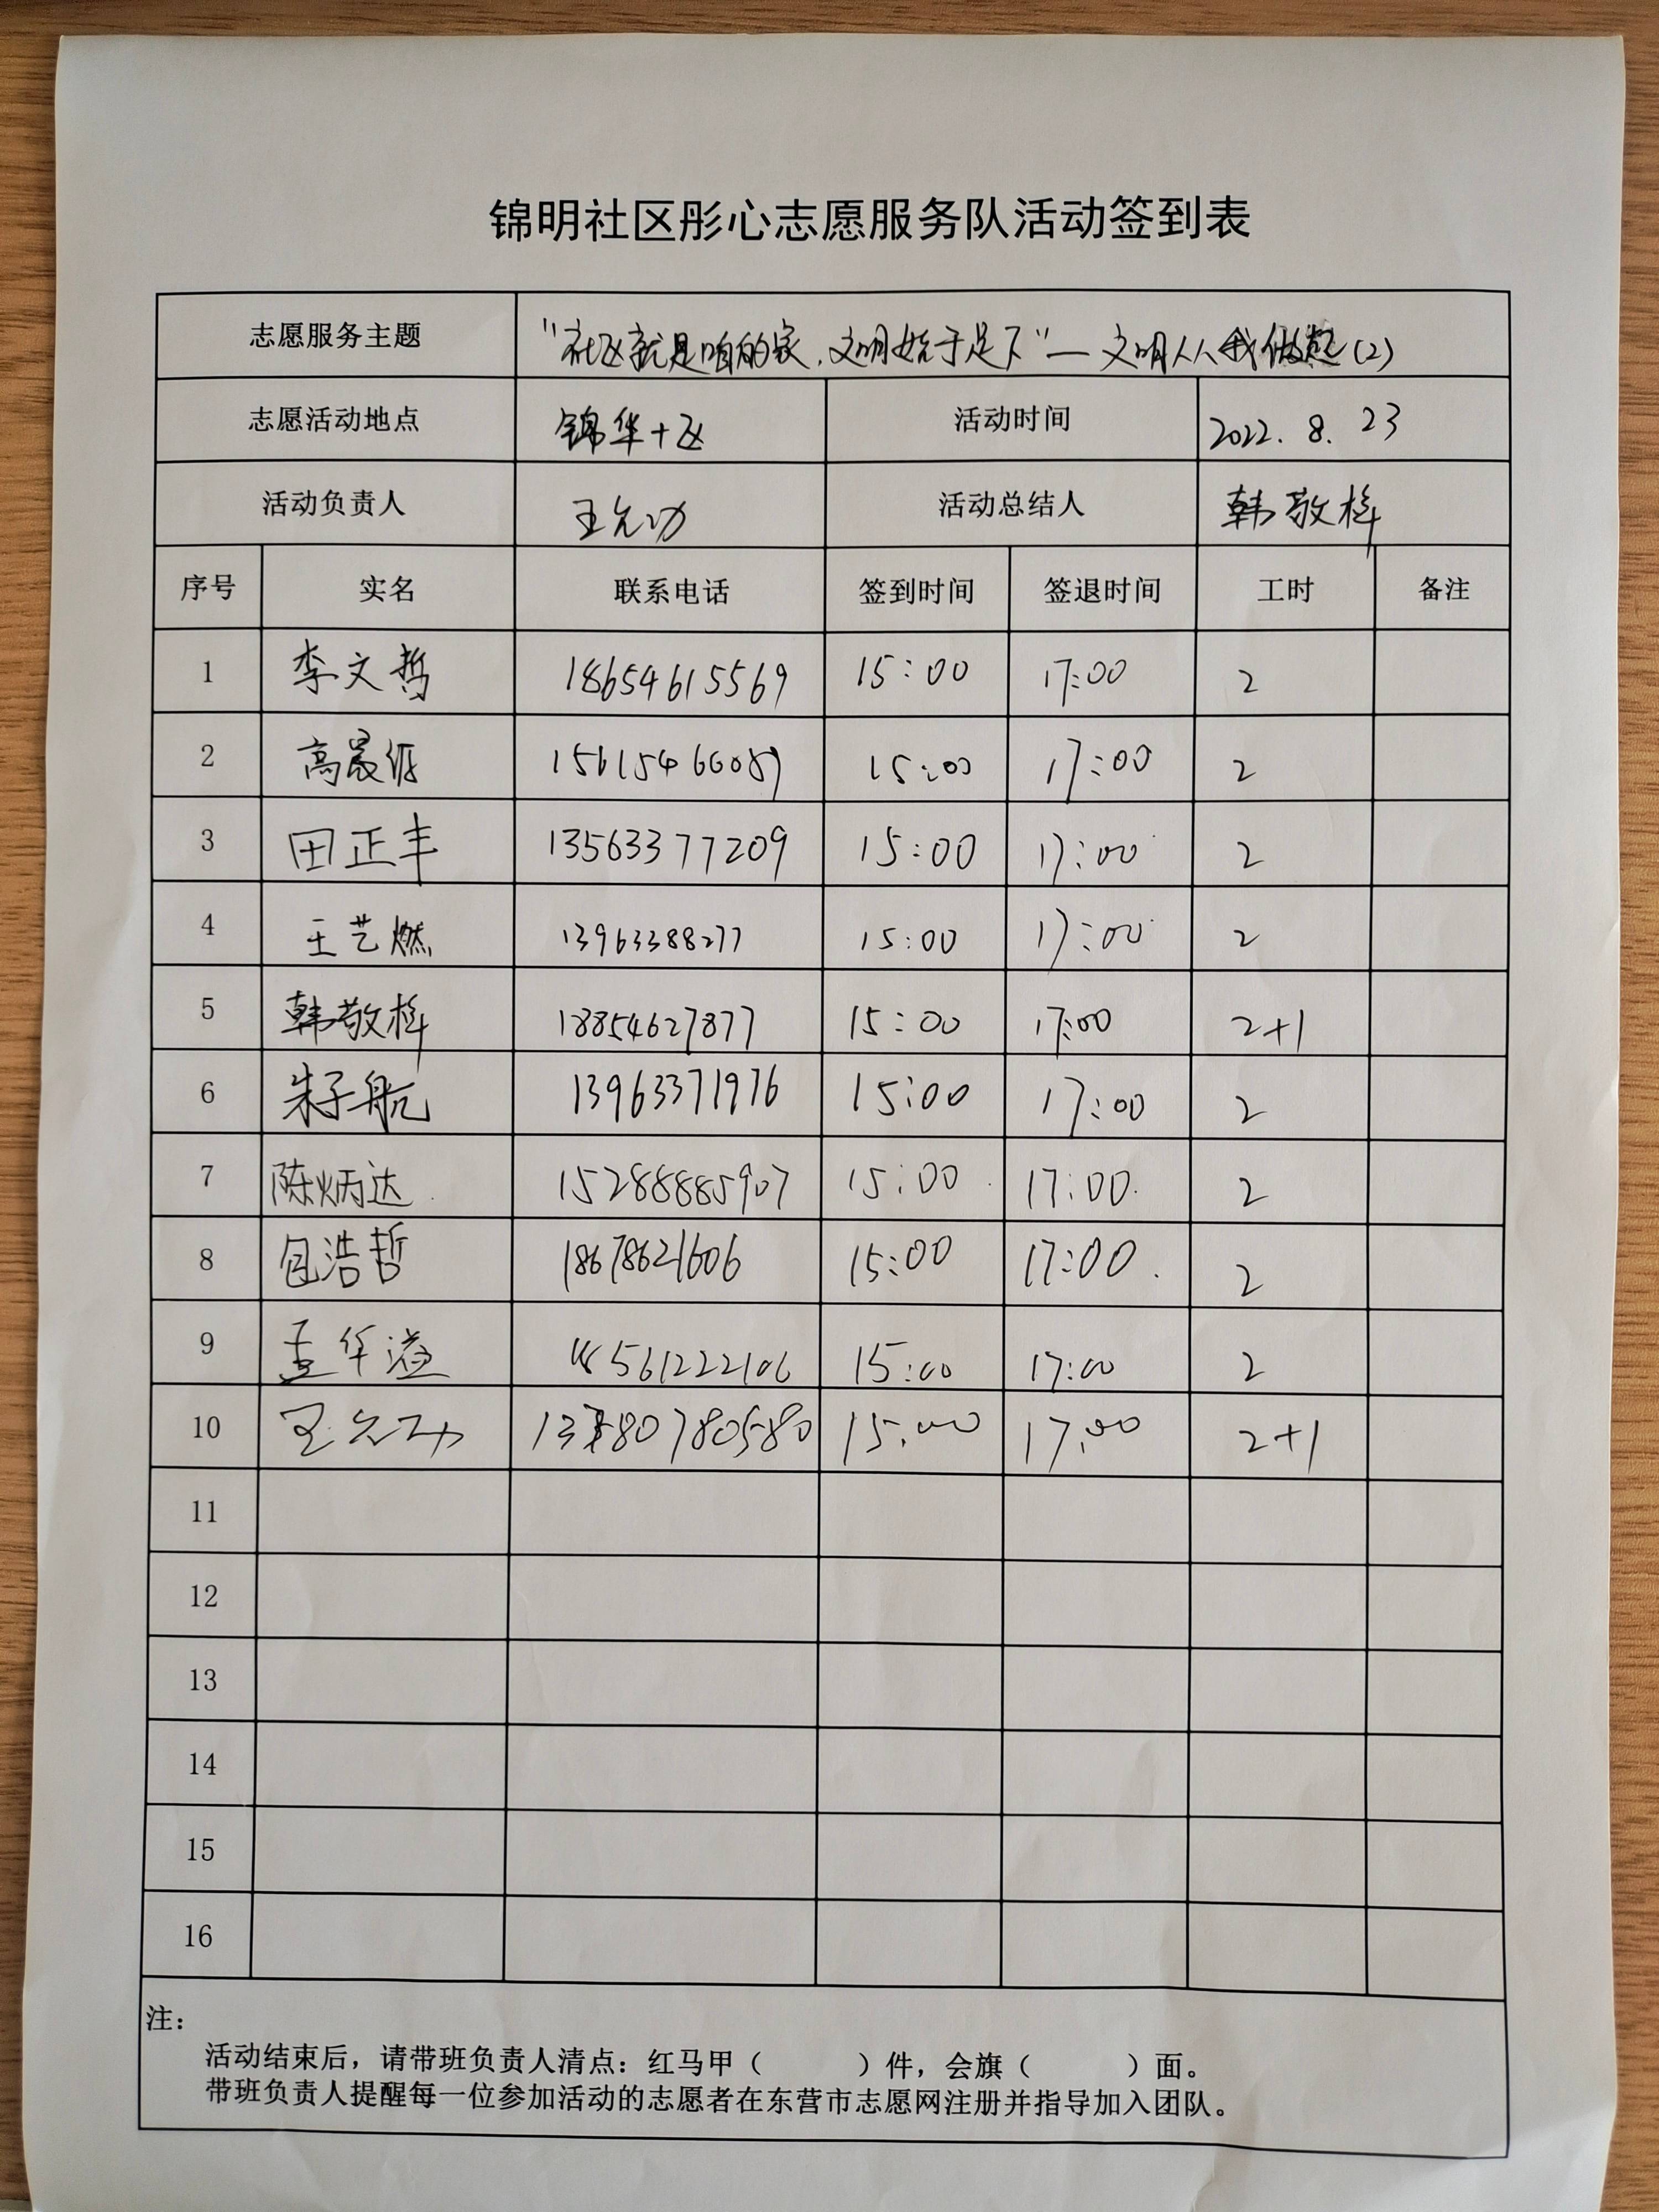 锦明社区彤心志愿服务队活动签到表
志愿服务主题 "社区就是咱的家,文明始于足下"—文明人人我做起(2)
志愿活动地点 锦华十区 活动时间 2022.8.23
活动负责人 王允功 活动总结人 韩敬梓
序号 实名 联系电话 签到时间 签退时间 工时 备注
1 李文哲 18654615569 15:00 17:00 2
2 高 15:00 17:00 2
3 田正丰 13563377209 15:00 17:00 2
4 王艺燃 13963388277 15:00 17:00 2
5 韩敬梓 18854627877 15:00 17:00 2+1
6 朱子航 13963371976 15:00 17:00 2
7 陈炳达 15288885907 15:00 17:00 2
8 包浩哲 18678621606 15:00 17:00 2
9 孟华溢 18561222106 15:00 17:00 2
10 王允功 15:00 17:00 2+1
11
12
13
14
15
16
注:
活动结束后,请带班负责人清点:红马甲( )件,会旗( )面。
带班负责人提醒每一位参加活动的志愿者在东营市志愿网注册并指导加入团队。